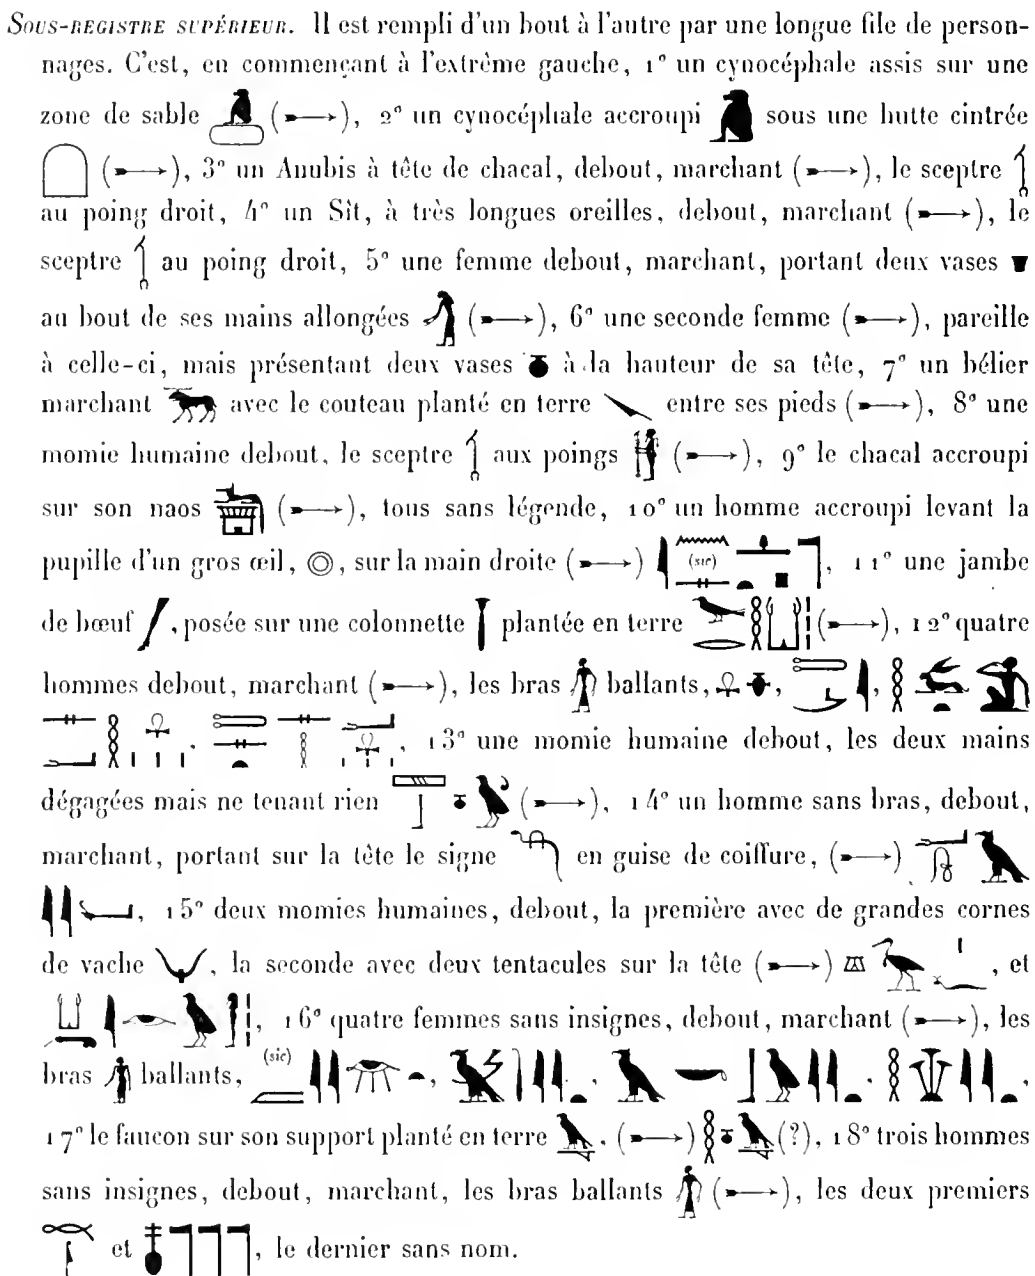 Sous-registre supérieur. Il est rempli d'un bout à l'autre par une longue file de person-
nages. C'est, en commençant à l'extrême gauche, 1° un cynocéphale assis sur une
zone de sable (➳), 2° un cynocéphale accroupi sous une hutte cintrée
(➳), 3° un Anubis à tête de chacal, debout, marchant (➳), le sceptre
au poing droit, 4° un Sît, à très longues oreilles, debout, marchant (➳), le
sceptre au poing droit, 5° une femme debout, marchant, portant deux vases
au bout de ses mains allongées (➳), 6° une seconde femme (➳), pareille
à celle-ci, mais présentant deux vases à la hauteur de sa tête, 7° un bélier
marchant avec le couteau planté en terre entre ses pieds (➳), 8° une
momie humaine debout, le sceptre aux poings (➳), 9° le chacal accroupi
sur son naos (➳), tous sans légende, 10° un homme accroupi levant la
pupille d'un gros œil, ◎, sur la main droite (➳) (sic), 11° une jambe
de bœuf, posée sur une colonnette plantée en terre (➳), 12° quatre
hommes debout, marchant (➳), les bras ballants,
13° une momie humaine debout, les deux mains
dégagées mais ne tenant rien (➳), 14° un homme sans bras, debout,
marchant, portant sur la tête le signe en guise de coiffure, (➳)
15° deux momies humaines, debout, la première avec de grandes cornes
de vache, la seconde avec deux tentacules sur la tête (➳), et
16° quatre femmes sans insignes, debout, marchant (➳), les
bras ballants, (sic)
17° le faucon sur son support planté en terre, (➳) (?), 18° trois hommes
sans insignes, debout, marchant, les bras ballants (➳), les deux premiers
et, le dernier sans nom.